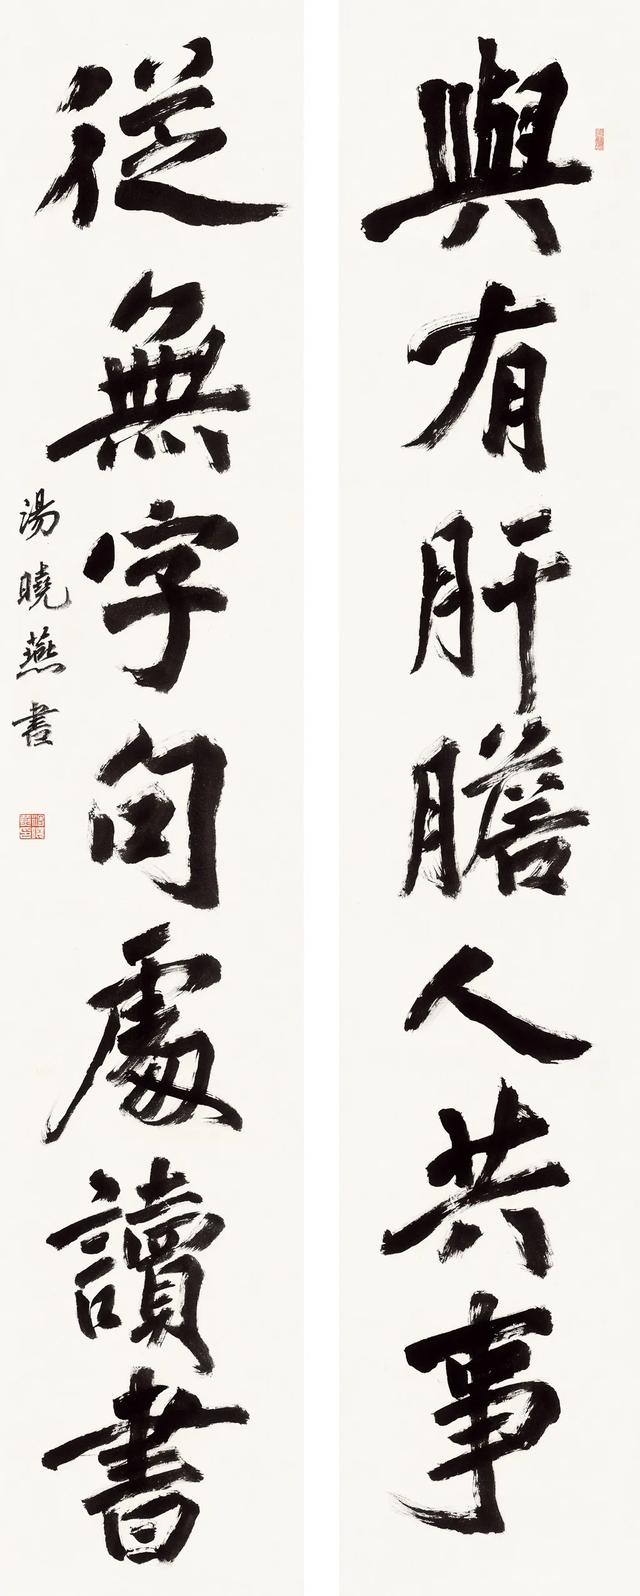 與有肝膽人共事
從無字句處讀書
湯曉燕書